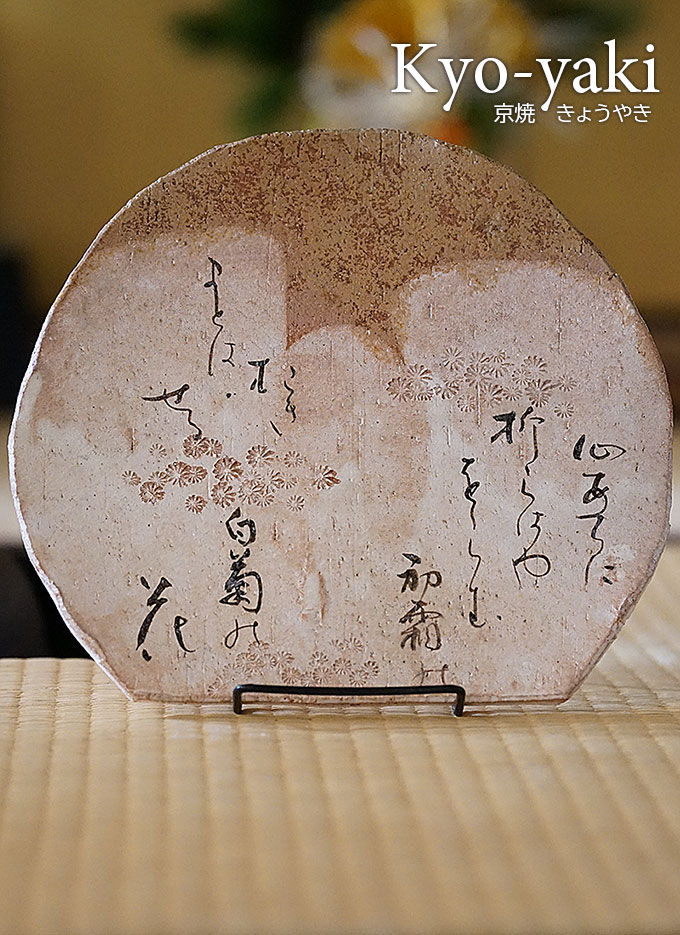 Kyo-yaki
京焼 きょうやき
心あてに
折らはや
をらむ
初霜の
まとは
せる
白菊の
花